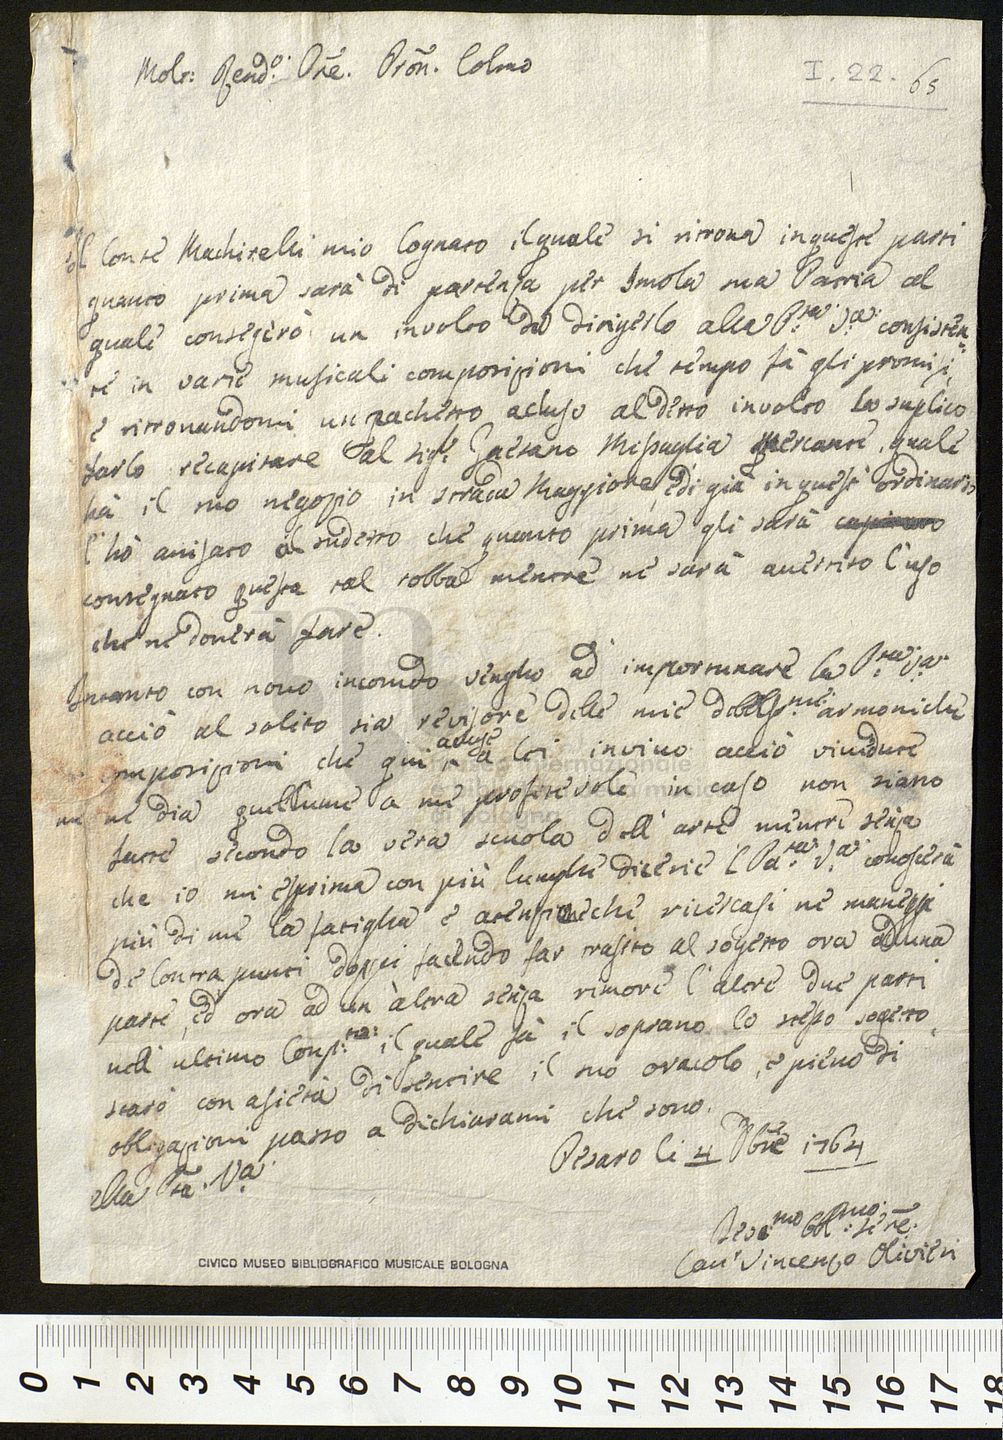 Molt: Rend.o Pré. Pron. Colmo
I. 22. 65
Il Conte Machirelli mio Cognato il quale si ritrova in queste parti
quanto prima sarà di partenza per Imola sua Patria al
quale consegerò un involto da dirigerlo alla P.tà V.a consisten
te in varie musicali composizioni che tempo fà gli promisi,
e ritrovandomi un pachetto acluso al detto involto lo suplico
farlo recapitare al sig.r Gaetano Missaglia Mercante, quale
hà il suo negozio in strada Maggiore, e di già in quest' ordinario
l'hò avisato al sudetto che quanto prima gli sarà
consegnato questa tal robba mentre ne sarà avertito l'uso
che ne dovera fare.
Intanto con novo incomdo vengho ad importunare la P.tà V.a
acciò al solito sia revisore delle mie armoniche
composizioni che qui acluse a lei invivo acciò
ne dia quel lume a me profitevole in caso non siano
fatte secondo la vera scuola dell' arte mentre senza
che io mi esprima con più lunghe dicerie la P.tà V.a conoscerà
più di me la fatigha e atenzione che ricercasi ne manegi
de Contrapunti doppi facendo far trasito al sogetto ora ad una
parte, ed ora ad un àltra senza rimore l'altre due parti
nell' ultimo Conp.to: il quale fà il soprano lo stesso sogetto,
starò con asietà di sentire il suo oracolo, e pieno di
obligazioni passo a dichiararmi che sono.
Pesaro li 4 Xbre 1764
Della P.tà V.a
Dev.mo Obl.mo: Serê.
Can.r Vincenzo Olivieri
CIVICO MUSEO BIBLIOGRAFICO MUSICALE BOLOGNA
museo internazionale
e biblioteca della musica
di bologna
0 1 2 3 4 5 6 7 8 9 10 11 12 13 14 15 16 17 18